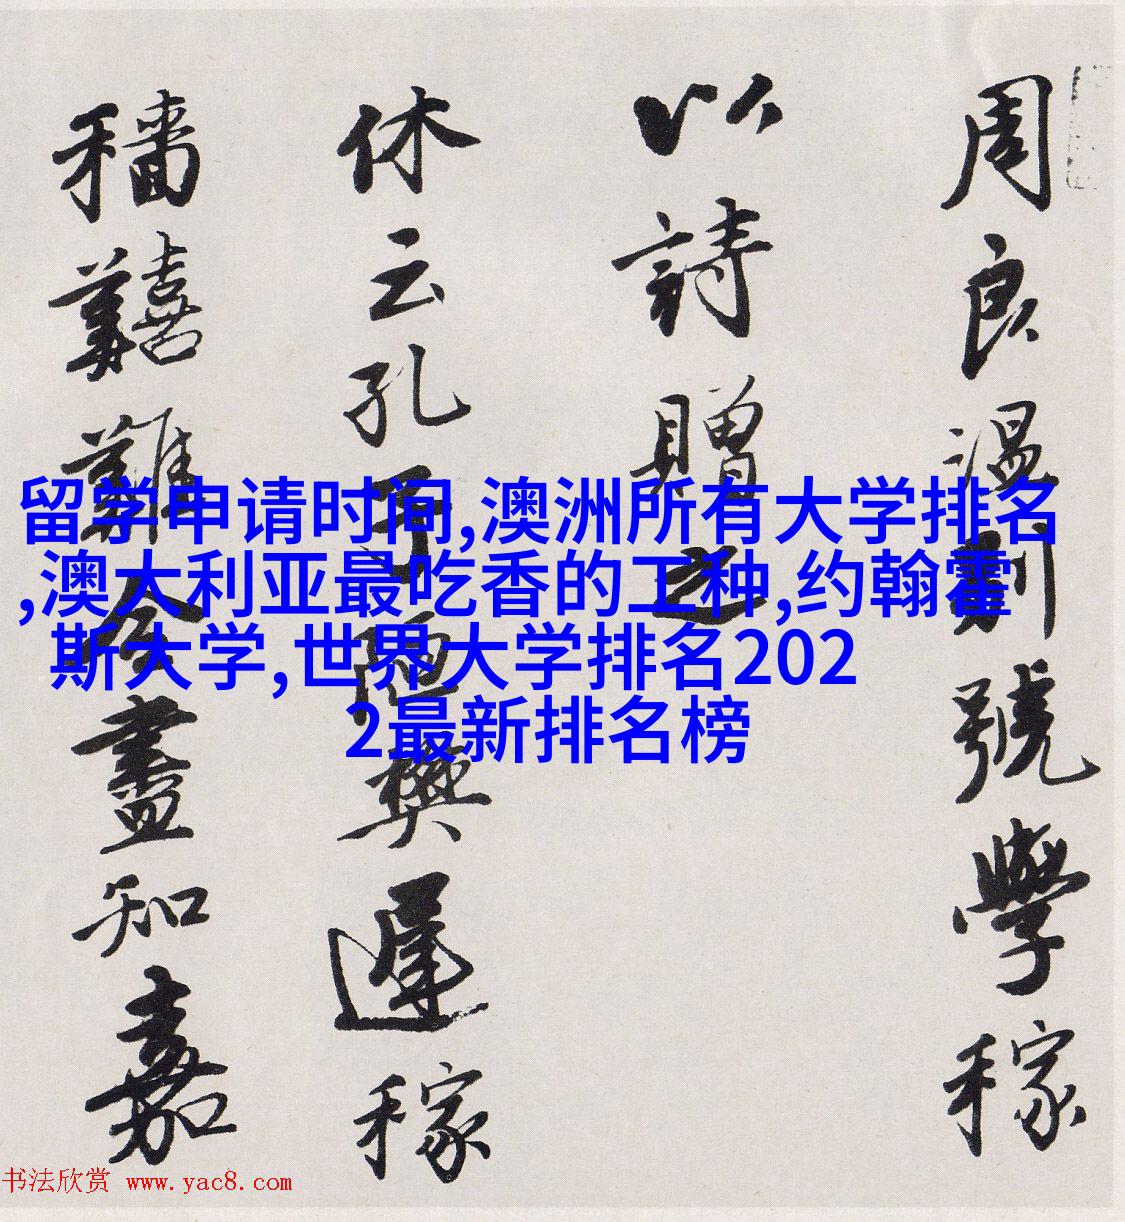 周良温别號學稼
以詩贈之
休云孔樊遲稼
穡囏難盡知嘉
留学申请时间,澳洲所有大学排名
,澳大利亚最吃香的工种,约翰霍
斯大学,世界大学排名202
2最新排名榜
书法欣赏 www.yac8.com